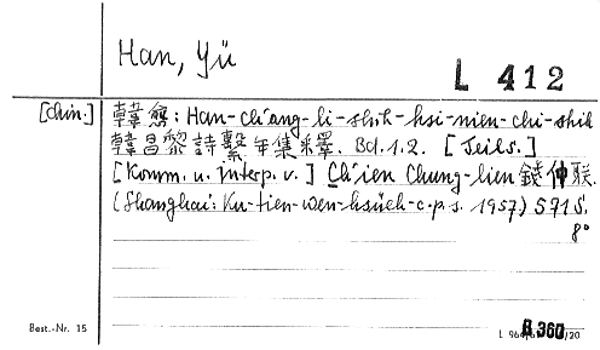 Han, Yü
L 412
[Chin.] 韓愈: Han-ch'ang-li-shih-hsi-nien-chi-shih
韓昌黎詩繫年集釋. Bd. 1.2. [Teils.]
[Komm. u. interp. v.] Ch'ien Chung-lien 錢仲联.
(Shanghai: Ku-tien-wen-hsüeh-c.p.s. 1957) 571 S.
8°
Best.-Nr. 15
8.360